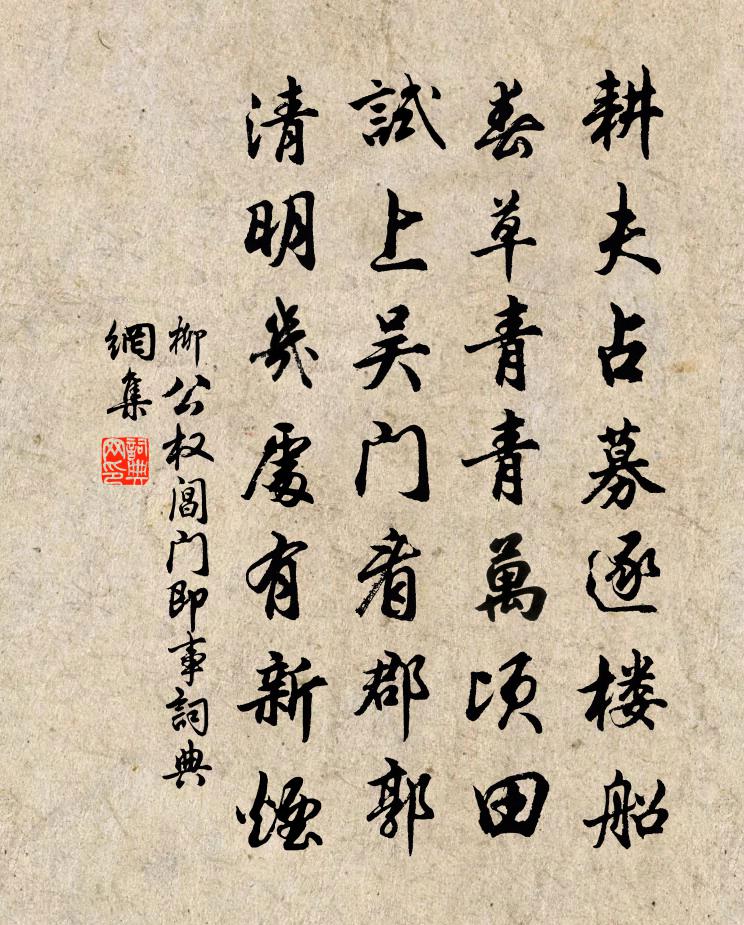 耕夫占募逐楼船
春草青青萬頃田
試上吴门看郡郭
清明幾處有新煙
柳公权阊门即事詞典
網集
詞典
网印